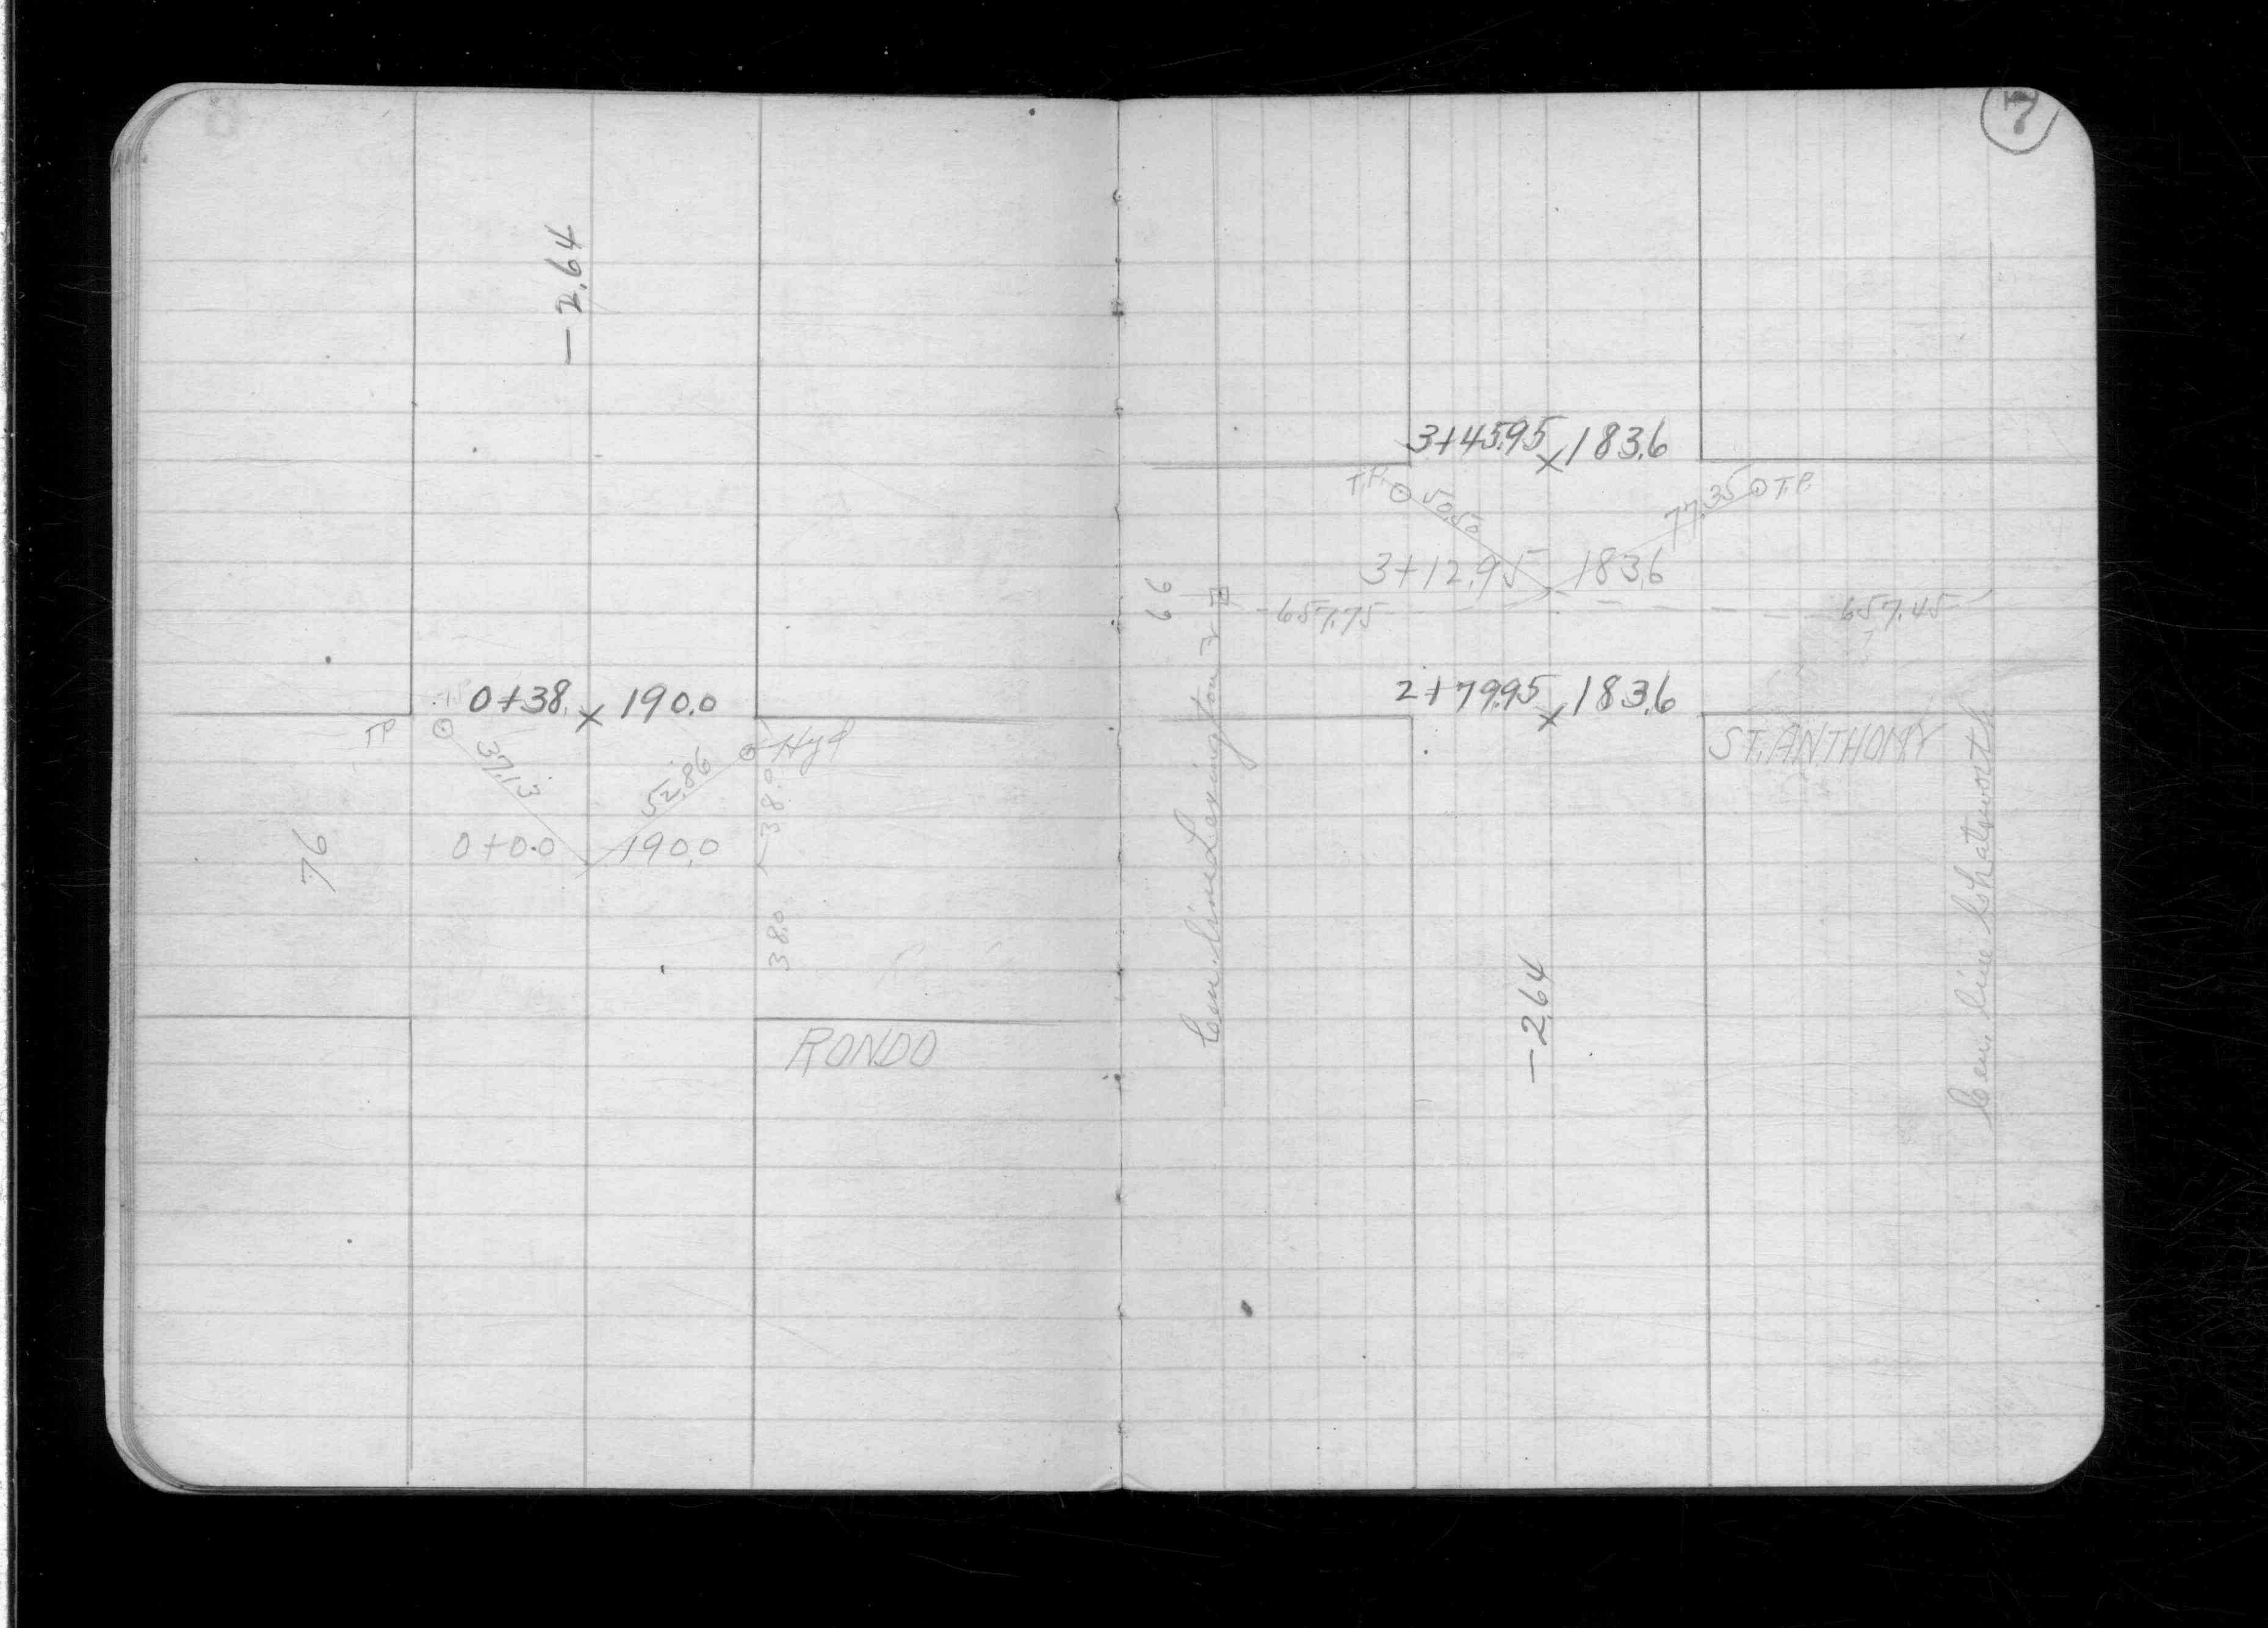 -2.64
0+38. x 190.0
T.P.
37.13
52.86
Hyd
38.0
0+0.0 190.0
76
38.0
RONDO
7
3+45.95 x 183.6
T.P.
50.50
77.35
T.P.
3+12.95 183.6
66
657.75
657.45
2+79.95 x 183.6
ST. ANTHONY
Cen. line Lexington
Cen. line Chatsworth
-2.64